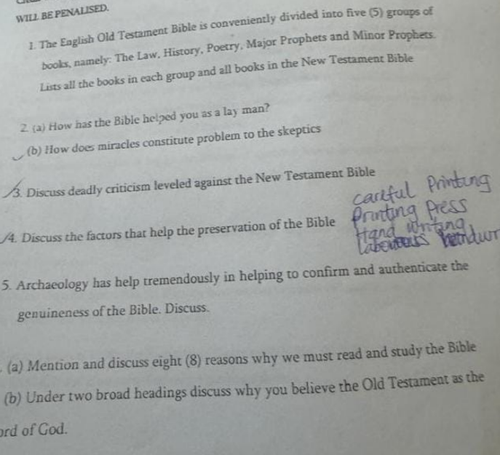 WILL BE PENALISED.
1. The English Old Testament Bible is conveniently divided into five (5) groups of
books, namely: The Law, History, Poetry, Major Prophets and Minor Prophets.
Lists all the books in each group and all books in the New Testament Bible
2. (a) How has the Bible helped you as a lay man?
(b) How does miracles constitute problem to the skeptics
3. Discuss deadly criticism leveled against the New Testament Bible
careful Printing
Printing Press
4. Discuss the factors that help the preservation of the Bible
Hand writing
5. Archaeology has help tremendously in helping to confirm and authenticate the
genuineness of the Bible. Discuss.
(a) Mention and discuss eight (8) reasons why we must read and study the Bible
(b) Under two broad headings discuss why you believe the Old Testament as the
ord of God.